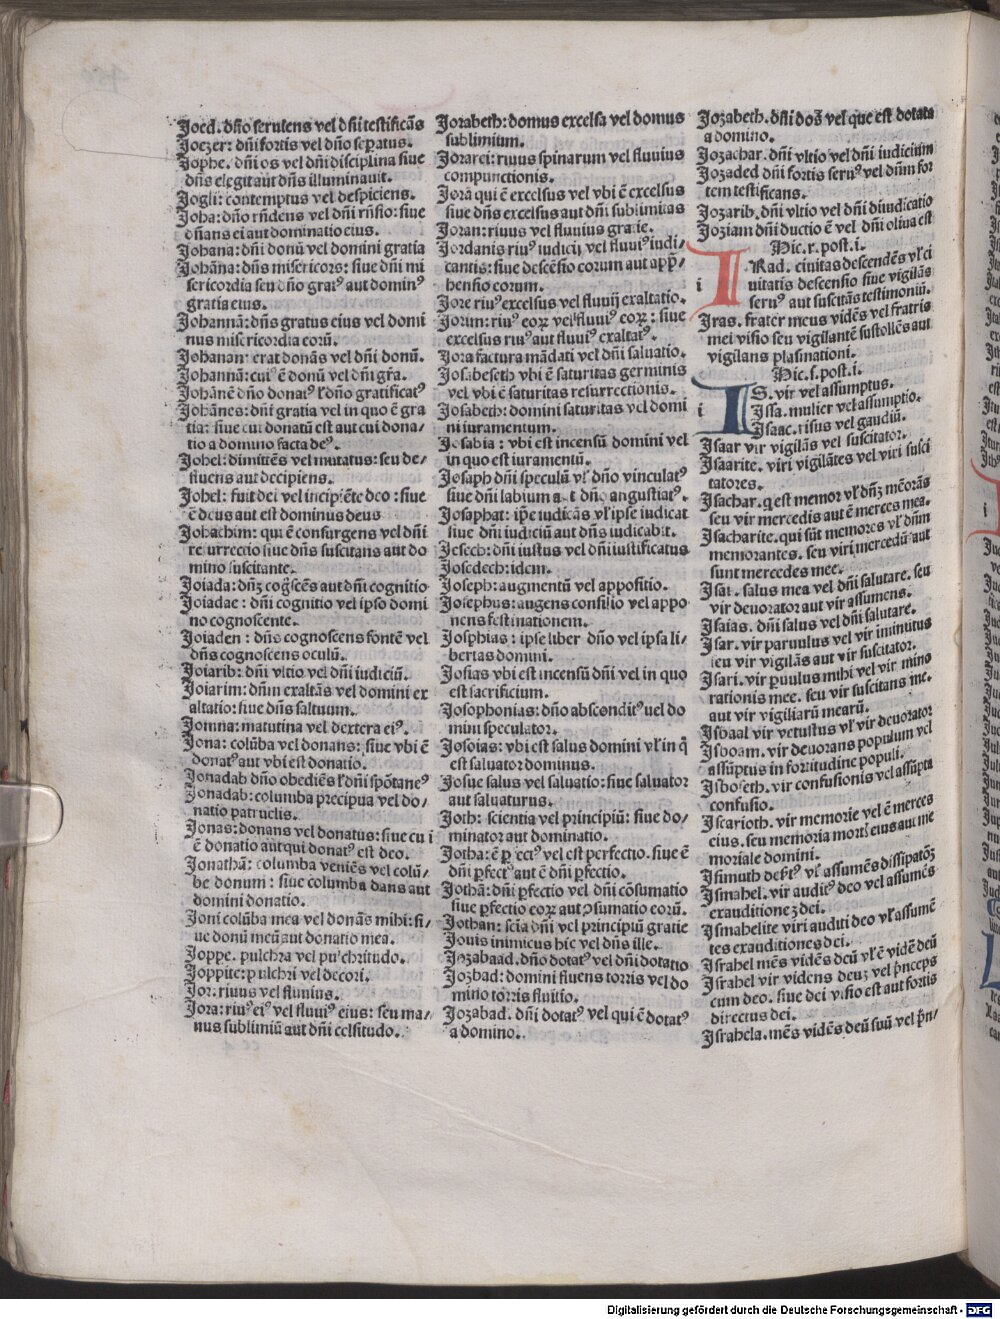 Joed. dño seruiens vel dñi testificãs
Joezer: dñi fortis vel dño sepatus.
Jophe. dñi os vel dñi disciplina siue
dñs elegit aut dñs illuminauit.
Jogli: contemptus vel despiciens.
Joha: dño rñdens vel dñi rñsio: siue
dñans ei aut dominatio eius.
Johana: dñi donũ vel domini gratia
Johãna: dñs misericors: siue dñi mi
sericordia seu dño gratꝰ aut dominꝰ
gratia eius.
Johannã: dñs gratus eius vel domi
nus misericordia eorũ.
Johanan: erat donãs vel dñi donũ.
Johannã: cuiꝰ ẽ donũ vel dñi gr̃a.
Johãnẽ dño donatꝰ ł dño gratificatꝰ
Johãnes: dñi gratia vel in quo ẽ gra
tia: siue cui donatũ est aut cui dona/
tio a domino facta deꝰ.
Johel: dimittẽs vel mutatus: seu de/
fluens aut decipiens.
Johel: fuit dei vel incipiẽte deo: siue
ẽ deus aut est dominus deus
Johachim: qui ẽ consurgens vel dñi
resurrectio siue dñs suscitans aut do
mino suscitante.
Joiada: dñꝫ cogscẽs aut dñi cognitio
Joiadae: dñi cognitio vel ipso domi
no cognoscente.
Joiaden: dñs cognoscens fontẽ vel
dñs cognoscens oculũ.
Joiarib: dñi vltio vel dñi iudiciũ.
Joiarim: dñm exaltãs vel domini ex
altatio: siue dñs saltuum.
Jomna: matutina vel dextera eiꝰ.
Jona: colũba vel donans: siue vbi ẽ
donatꝰ aut vbi est donatio.
Jonadab dño obediẽs ł dñi spõtaneꝰ
Jonadab: columba precipua vel do/
natio patruelis.
Jonas: donans vel donatus: siue cu i
ẽ donatio aut qui donatꝰ est deo.
Jonathã: columba veniẽs vel colũ/
be donum: siue columba dans aut
domini donatio.
Joni colũba mea vel donãs mihi: si/
ue donũ meũ aut donatio mea.
Joppe. pulchra vel pulchritudo.
Joppite: pulchri vel decori.
Jor: riuus vel fluuius.
Jora: riuꝰ eiꝰ vel fluuiꝰ eius: seu ma/
nus sublimiũ aut dñi celsitudo.
Jorabeth: domus excelsa vel domus
sublimium.
Jorarei: riuus spinarum vel fluuius
compunctionis.
Jorã qui ẽ excelsus vel vbi ẽ excelsus
siue dñs excelsus aut dñi sublimitas
Joran: riuus vel fluuius gratie.
Jordanis riuꝰ iudicij vel fluuiꝰ iudi/
cantis: siue descẽsio eorum aut appꝛ/
hensio eorum.
Jore riuꝰ excelsus vel fluuij exaltatio.
Jorum: riuꝰ eoꝝ vel fluuiꝰ eoꝝ: siue
excelsus riuꝰ aut fluuiꝰ exaltatꝰ.
Josa factura mãdati vel dñi saluatio.
Josabeseth vbi ẽ saturitas germinis
vel vbi ẽ saturitas resurrectionis.
Josabeth: domini saturitas vel domi
ni iuramentum.
Josabia: vbi est incensũ domini vel
in quo est iuramentũ.
Josaph dñi speculũ vł dño vinculatꝰ
siue dñi labium aut dño angustiatꝰ.
Josaphat: ip̃e iudicãs vł ipse iudicat
siue dñi iudiciũ aut dñs iudicabit.
Josech: dñi iustus vel dñi iustificatus
Josedech: idem.
Joseph: augmentũ vel appositio.
Josephus: augens consilio vel appo
nens festinationem.
Josphias: ipse liber dño vel ipsa li/
bertas domini.
Josias vbi est incensũ dñi vel in quo
est sacrificium.
Josophonias: dño absconditꝰ uel do
mini speculator.
Josoias: vbi est salus domini vł in q̃
est saluator dominus.
Josue salus vel saluatio: siue saluator
aut saluaturus.
Joth: scientia vel principiũ: siue do/
minator aut dominatio.
Jotha: ẽ pfectꝰ vel est perfectio. siue ẽ
dñi pfectꝰ aut ẽ dñi pfectio.
Jothã: dñi pfectio vel dñi cõsumatio
siue pfectio eoꝝ aut ꝯsumatio eorũ.
Jothan: sciã dñi vel principiũ gratie
Jouis inimicus hic vel dñs ille.
Jozabaad. dño dotatꝰ vel dñi dotatio
Jozbad: domini fluens torris vel do
mino torris fluitio.
Jozabad. dñi dotatꝰ vel qui ẽ dotatꝰ
a domino.
Jozabeth. dñi dos vel que est dotata
a domino.
Jozachar. dñi vltio vel dñi iudicium
Jozaded dñi fortis seruꝰ vel dñm for
tem testificans.
Jozarib. dñi vltio vel dñi diiudicatio
Joziam dñi ductio ẽ vel dñi oliua est
Hic. r. post. i.
i IRad. ciuitas descendẽs vł ci
uitatis descensio siue vigilãs
seruꝰ aut suscitãs testimoniũ.
Jras. frater meus vidẽs vel fratris
mei visio seu vigilantẽ sustollẽs aut
vigilans plasmationi.
Hic. s. post. i.
i IS. vir vel assumptus.
Issa. mulier vel assumptio.
Isaac. risus vel gaudiũ.
Isaar vir vigilãs vel suscitator.
Isaarite. viri vigilãtes vel viri susci
tatores.
Isachar. q est memor vł dñꝫ mẽorãs
seu vir mercedis aut ẽ merces mea.
Isacharite. qui sũt memores vł dñm
memorantes. seu viri mercedũ aut
sunt mercedes mee.
Isai. salus mea vel dñi salutare. seu
vir deuorator aut vir assumens.
Isaias. dñi salus vel dñi salutare.
Isar. vir paruulus vel vir iminutus
seu vir vigilãs aut vir suscitator.
Isari. vir puulus mihi vel vir mino
rationis mee. seu vir suscitans me.
aut vir vigiliarũ mearũ.
Isbaal vir vetustus vł vir deuorator
Isboam. vir deuorans populum vel
assũptus in fortitudine populi.
Isboseth. vir confusionis vel assũpta
confusio.
Iscarioth. vir memorie vel ẽ merces
eius. seu memoria mortꝭ eius aut me
moriale domini.
Ismahel. vir auditꝰ deo vel assumẽs
exauditionẽ dei.
Ismahelite viri auditi deo vł assumẽ
tes exauditiones dei.
Israhel mẽs vidẽs deũ vł ẽ vidẽ deũ
Israhel vir videns deuꝫ vel pnceps
cum deo. siue dei visio est aut fortis
directus dei.
Israhela. mẽs vidẽs deũ suũ vel pñ/
Digitalisierung gefördert durch die Deutsche Forschungsgemeinschaft - DFG